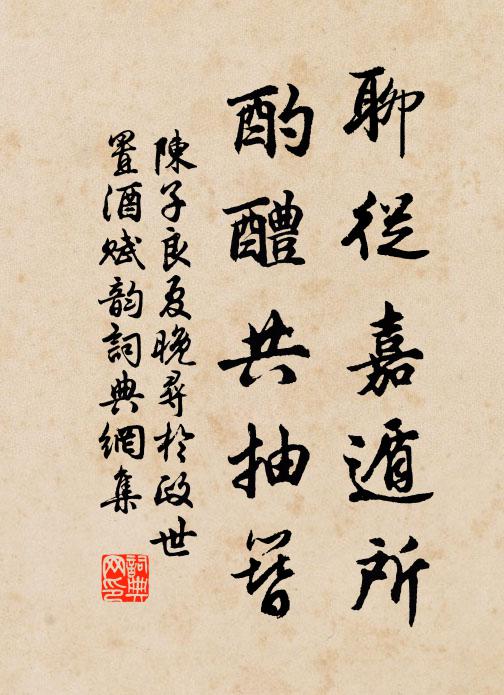 聊從嘉遁所
酌醴共抽簪
陳子良夏晚尋於政世
置酒賦韵詞典網集
詞典网印